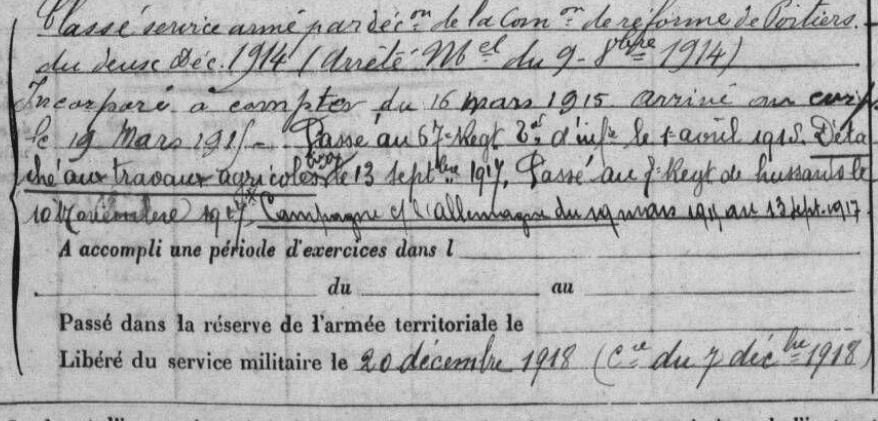 Classé service armé par déc.on de la Com.on de réforme de Poitiers.
du deux Déc. 1914 (Arrêté Mel du 9 - 8bre 1914)
Incorporé à compter du 16 mars 1915 arrivé au corps
le 19 Mars 1915 - Passé au 67e Regt d'inf.ie le 1er avril 1915. Déta
ché aux travaux agricoles le 13 septbre 1917. Passé au 7e Regt de hussards le
10 Novembre 1917. Campagne c/ l'allemagne du 19 mars 1915 au 13 sept. 1917
A accompli une période d'exercices dans l
du au
Passé dans la réserve de l'armée territoriale le
Libéré du service militaire le 20 décembre 1918 (Cre du 7 décbre 1918)